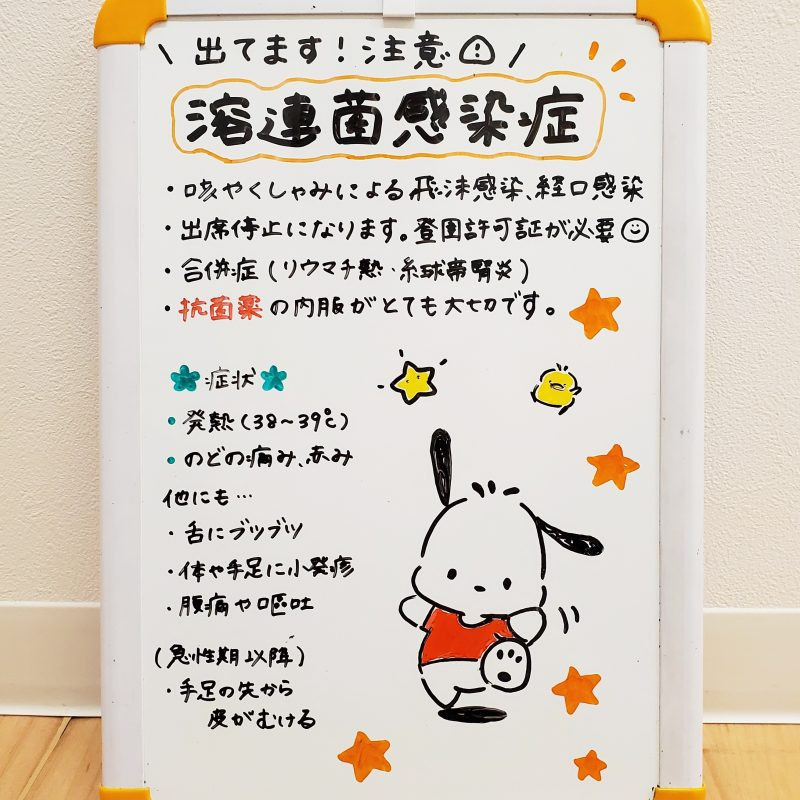 \ 出てます！注意⚠ /
溶連菌感染症
・咳やくしゃみによる飛沫感染、経口感染
・出席停止になります。登園許可証が必要☺
・合併症(リウマチ熱・糸球体腎炎)
・抗菌薬の内服がとても大切です。
症状
・発熱(38～39℃)
・のどの痛み、赤み
他にも…
・舌にブツブツ
・体や手足に小発疹
・腹痛や嘔吐
(急性期以降)
・手足の先から
皮がむける